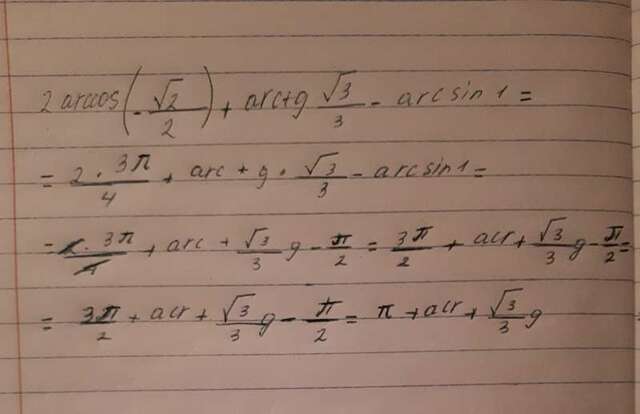 2 arccos(-√2/2) + arc+g √3/3 - arcsin 1 =
= 2 · 3π/4 + arc + g · √3/3 - arcsin1 =
= 2 · 3π/4 + arc + √3/3 g - π/2 = 3π/2 + acr + √3/3 g - π/2 =
= 3π/2 + acr + √3/3 g - π/2 = π + acr + √3/3 g